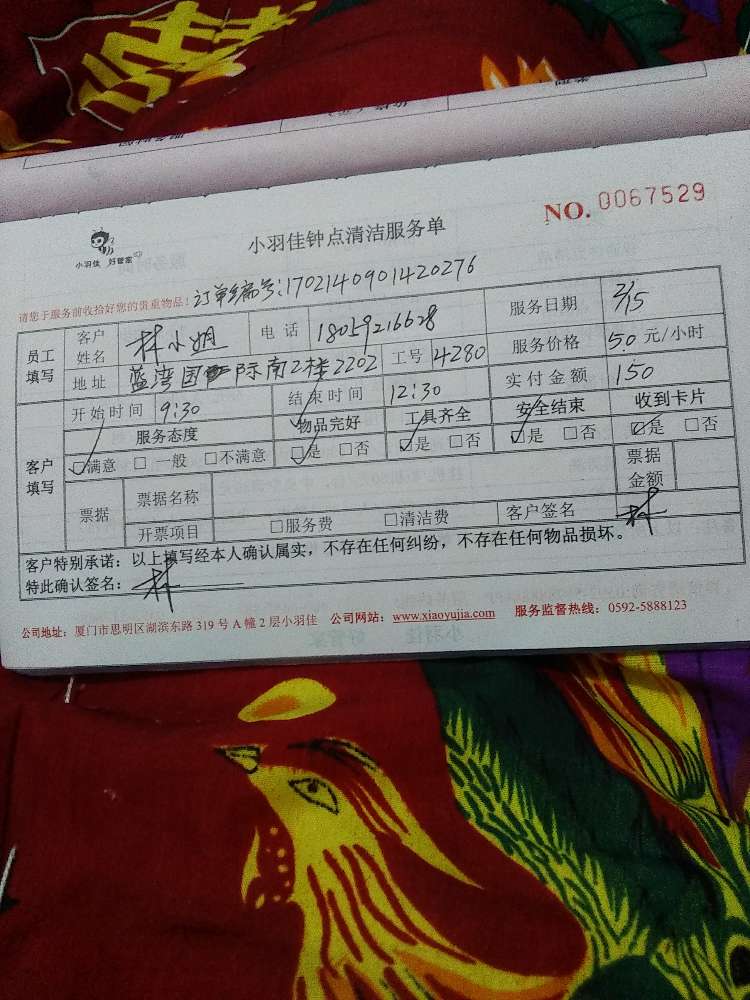 NO. 0067529
小羽佳 好管家
小羽佳钟点清洁服务单
请您于服务前收拾好您的贵重物品！ 订单编号：1702140901420276
员工填写 客户姓名 林小姐 电话 18059216628 服务日期 2/15
地址 蓝湾国际南2楼2202 工号 4280 服务价格 50 元/小时
客户填写 开始时间 9:30 结束时间 12:30 实付金额 150
服务态度 物品完好 工具齐全 安全结束 收到卡片
☑满意 □ 一般 □不满意 ☑是 □否 ☑是 □否 ☑是 □否 ☑是 □否
票据 票据名称 票据金额
开票项目 □服务费 □清洁费 客户签名 林
客户特别承诺：以上填写经本人确认属实，不存在任何纠纷，不存在任何物品损坏。
特此确认签名： 林
公司地址：厦门市思明区湖滨东路 319 号 A 幢 2 层小羽佳 公司网站：www.xiaoyujia.com 服务监督热线：0592-5888123